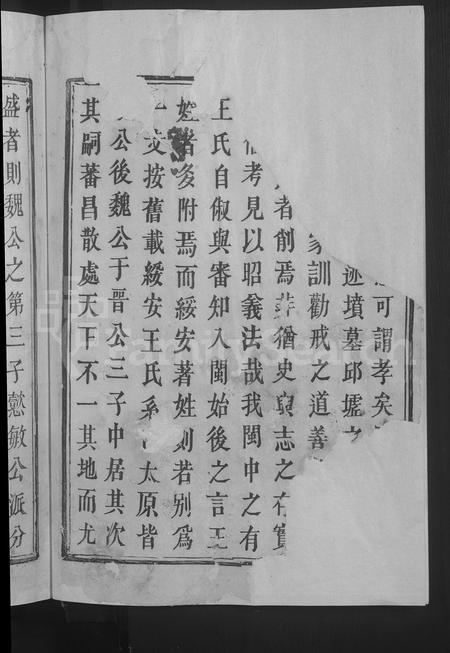 可謂孝矣
迹墳墓邱墟之
家訓勸戒之道善
者削焉非猶史與志之存實
考見以昭義法哉我閩中之有
王氏自俶與審知入閩始後之言王
姓者多附焉而綏安著姓則若别爲
支按舊載綏安王氏系太原皆
公後魏公于晋公三子中居其次
其嗣蕃昌散處天下不一其地而尤
盛者則魏公之第三子懿敏公派分